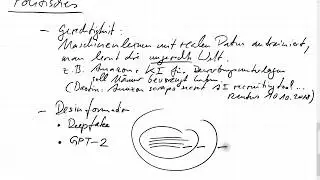 Politisches
– Gerechtigkeit:
Maschinenlernen mit realen Daten antrainiert,
man lernt die ungerechte Welt.
z.B. Amazon: KI für Bewerbungsunterlagen
soll Männer bevorzugt haben.
(Dastin: Amazon scraps secret AI recruiting tool ...
Reuters 10.10.2018)
– Desinformation
• Deepfake
• GPT-2